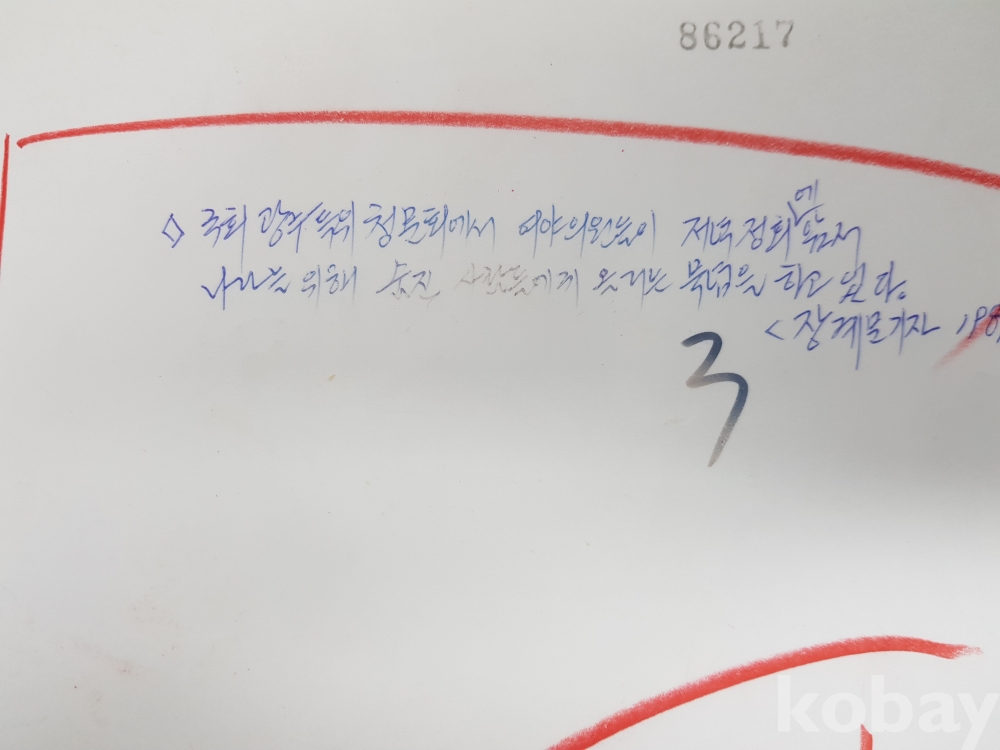 86217
◇ 국회 광주특위 청문회에서 여야의원들이 저녁정회에 앞서
나라를 위해 숨진 사람들에게 올리는 묵념을 하고 있다.
<장계문기자 198
3
kobay